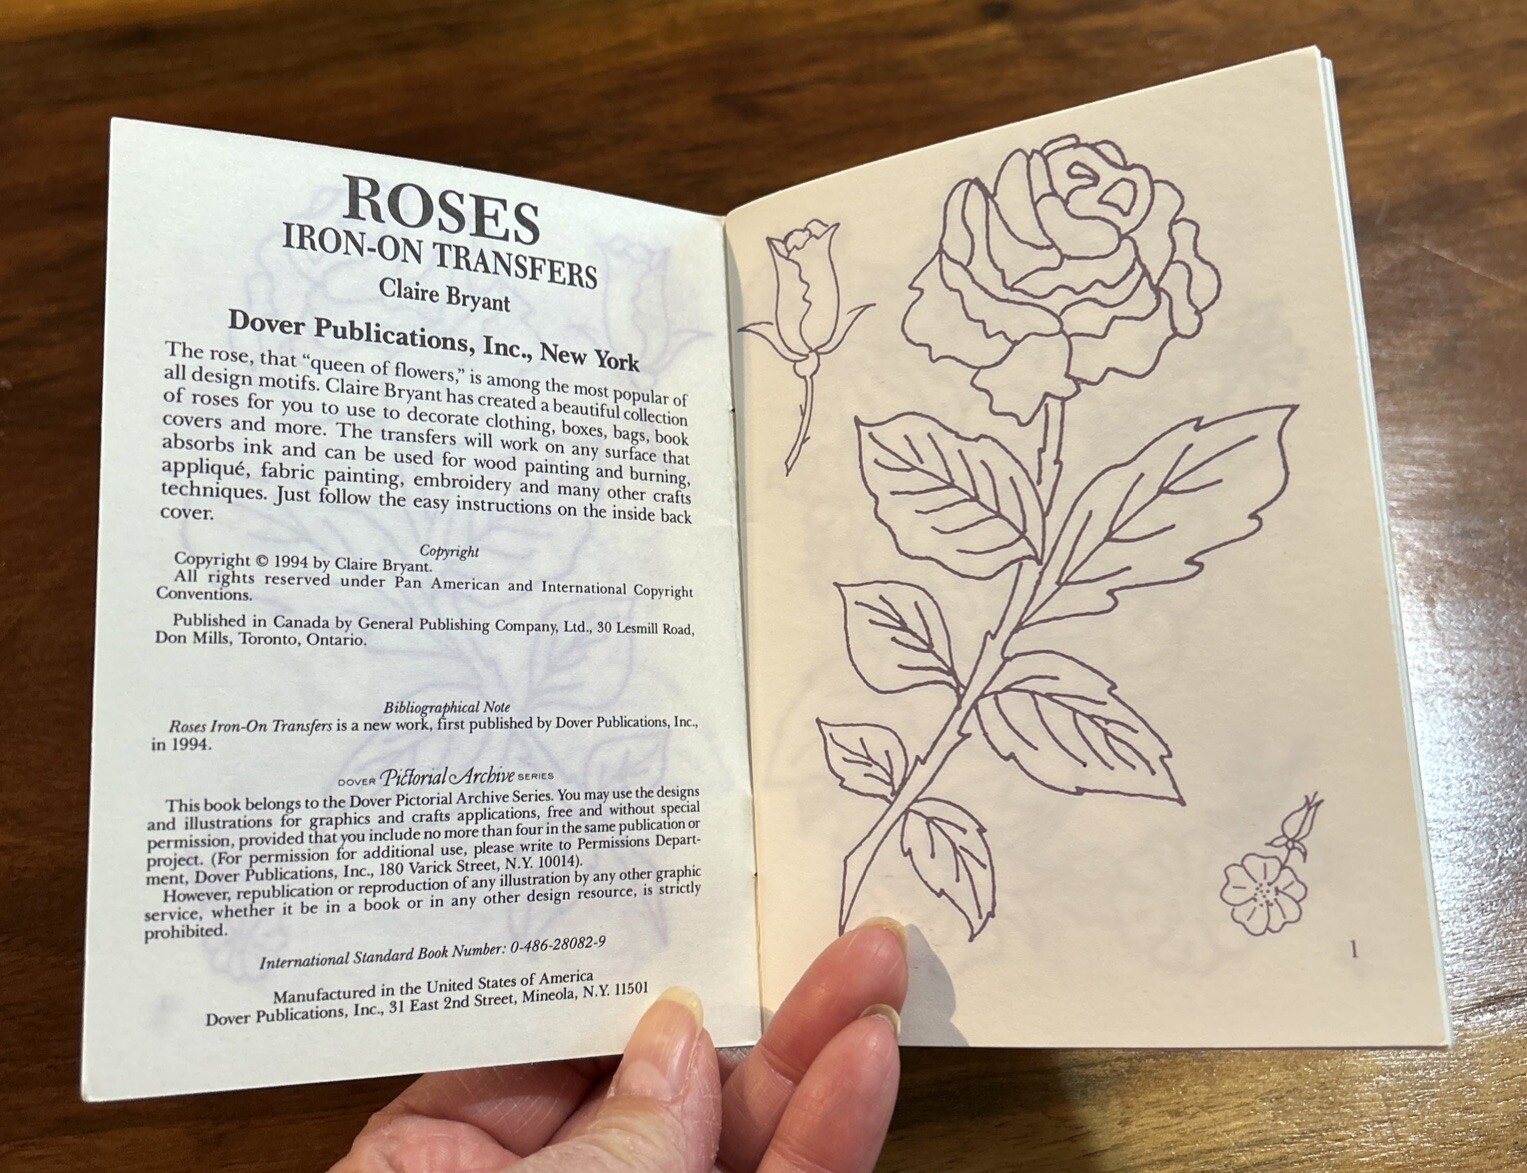 ROSES
IRON-ON TRANSFERS
Claire Bryant
Dover Publications, Inc., New York
The rose, that “queen of flowers,” is among the most popular of
all design motifs. Claire Bryant has created a beautiful collection
of roses for you to use to decorate clothing, boxes, bags, book
covers and more. The transfers will work on any surface that
absorbs ink and can be used for wood painting and burning,
appliqué, fabric painting, embroidery and many other crafts
techniques. Just follow the easy instructions on the inside back
cover.
Copyright
Copyright © 1994 by Claire Bryant.
All rights reserved under Pan American and International Copyright
Conventions.
Published in Canada by General Publishing Company, Ltd., 30 Lesmill Road,
Don Mills, Toronto, Ontario.
Bibliographical Note
Roses Iron-On Transfers is a new work, first published by Dover Publications, Inc.,
in 1994.
DOVER Pictorial Archive SERIES
This book belongs to the Dover Pictorial Archive Series. You may use the designs
and illustrations for graphics and crafts applications, free and without special
permission, provided that you include no more than four in the same publication or
project. (For permission for additional use, please write to Permissions Depart-
ment, Dover Publications, Inc., 180 Varick Street, N.Y. 10014).
However, republication or reproduction of any illustration by any other graphic
service, whether it be in a book or in any other design resource, is strictly
prohibited.
International Standard Book Number: 0-486-28082-9
Manufactured in the United States of America
Dover Publications, Inc., 31 East 2nd Street, Mineola, N.Y. 11501
1